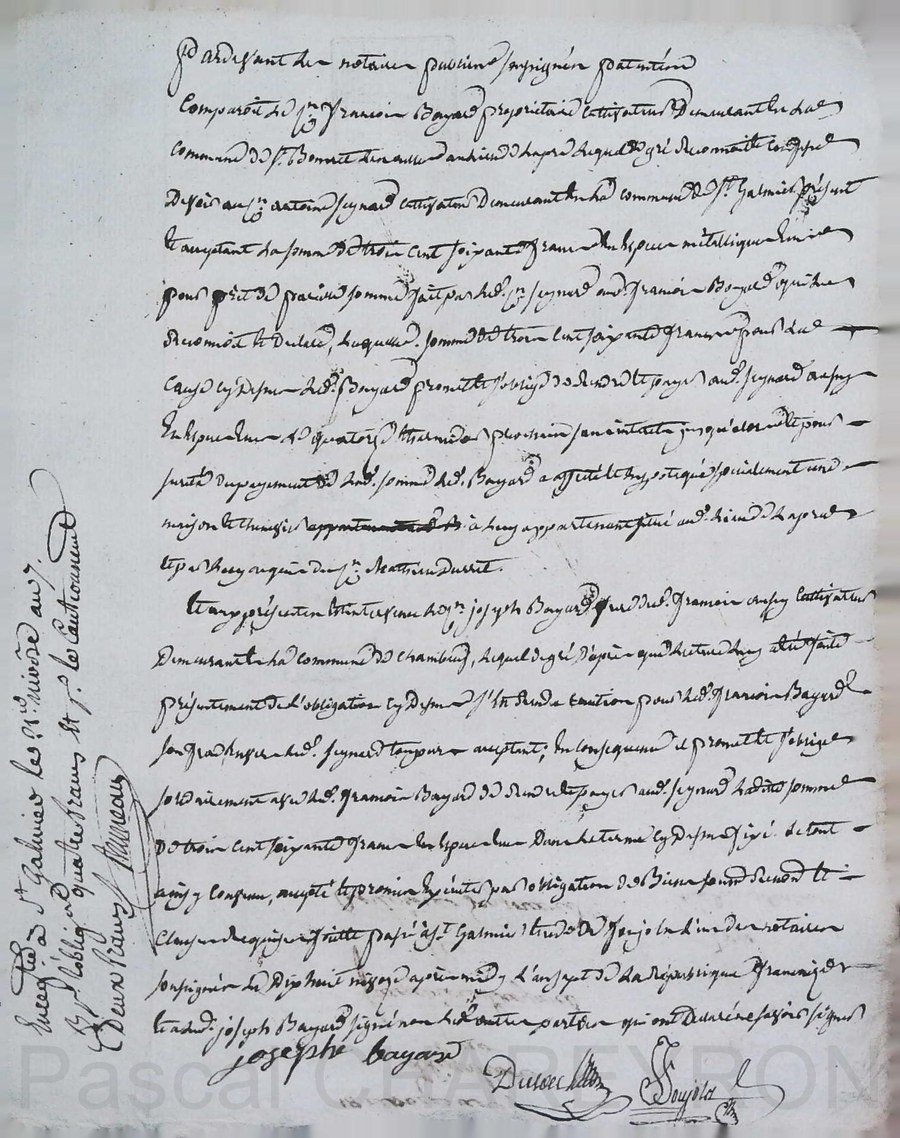 Pardevant les notaires publics soussignés patentés
Comparoit le cn françois Bayard propriétaire cultivateur Demeurant en la
commune de st Bonnet lequel de gré reconnoit et confesse
Devoir au cn antoine seynard cultivateur Demeurant en la commune de st Galmier présent
et acceptant la somme de trois cent soixante francs en Espece métallique
pour prêt de pareille somme fait par led. cn seynard aud. françois Bayard
reconnoit et Declare, laquelle somme de trois cent soixante francs pour la
cause cy Dessus led. Bayard promet et s'oblige de rendre et payer aud. seynard
En Especes le quatorze thermidor prochain sans intérêt jusqu'alors et pour
sureté du payement de lad. somme led. Bayard a affecté et hypotequé spécialement une
maison et à luy appartenant situé aud. lieu
et par luy acquis du cn Mathieu
Et aux présentes est intervenu le cn joseph Bayard frere dud. françois aussy cultivateur
Demeurant en la commune de Chambeuf, lequel de gré d'après que lecture luy a été faite
présentement de l'obligation cy Dessus s'est rendu caution pour led. françois Bayard
son frere envers led. seynard toujours acceptant; En consequence il promet et s'oblige
solidairement avec led. françois Bayard de rendre et payer aud. seynard ladite somme
De trois cent soixante francs en Especes Dans le terme cy Dessus fixé. le tout
ainsy convenu, accepté et promis Exécuter par obligation de Biens
Clauses requises fait et passé à st Galmier Etude de Poujols l'un des notaires
soussignés le Dixhuit nivose après midy l'an sept de la République française
et a led. joseph Bayard signé non les autres parties qui ont Declaré ne savoir signer
josephe bayard
Poujols
Enregistré à st Galmier le 21 nivôse an 7.
R. pr l'obligion quatre francs et pr le Cautionnement
Deux francs
Pascal CHAREYRON